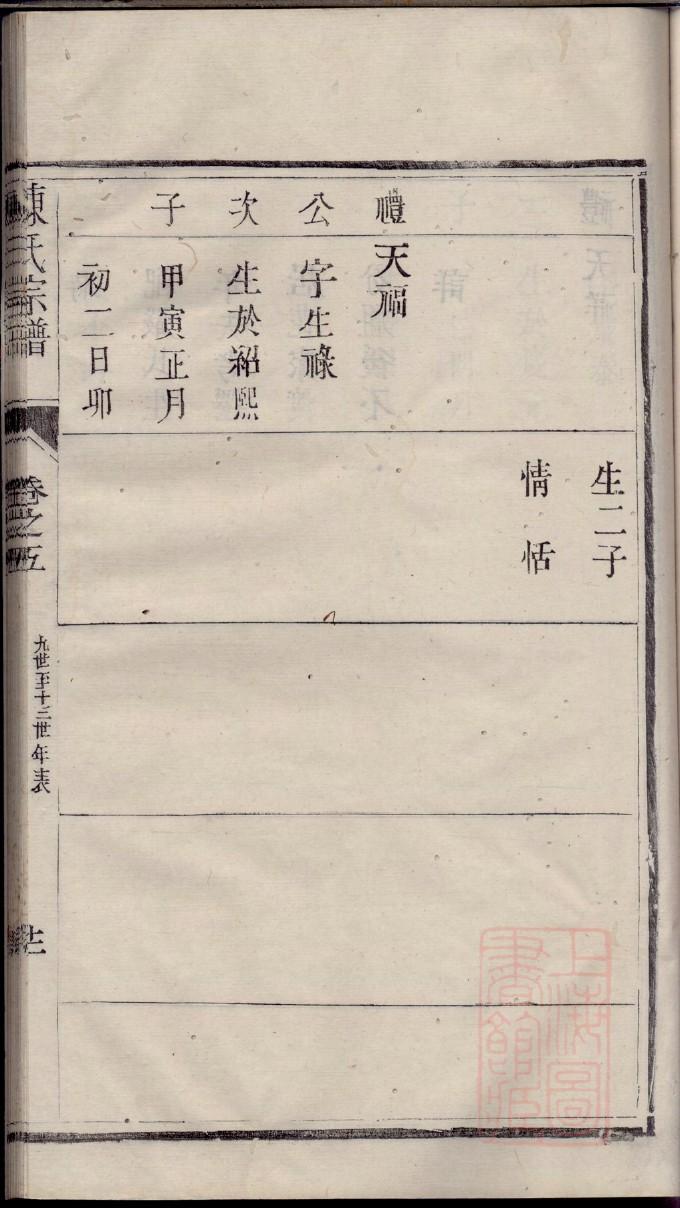 禮公次子
天福
字生祿
生於紹熙
甲寅正月
初二日卯
生二子
情 恬
陳氏宗譜
卷之五
九世至十三世年表